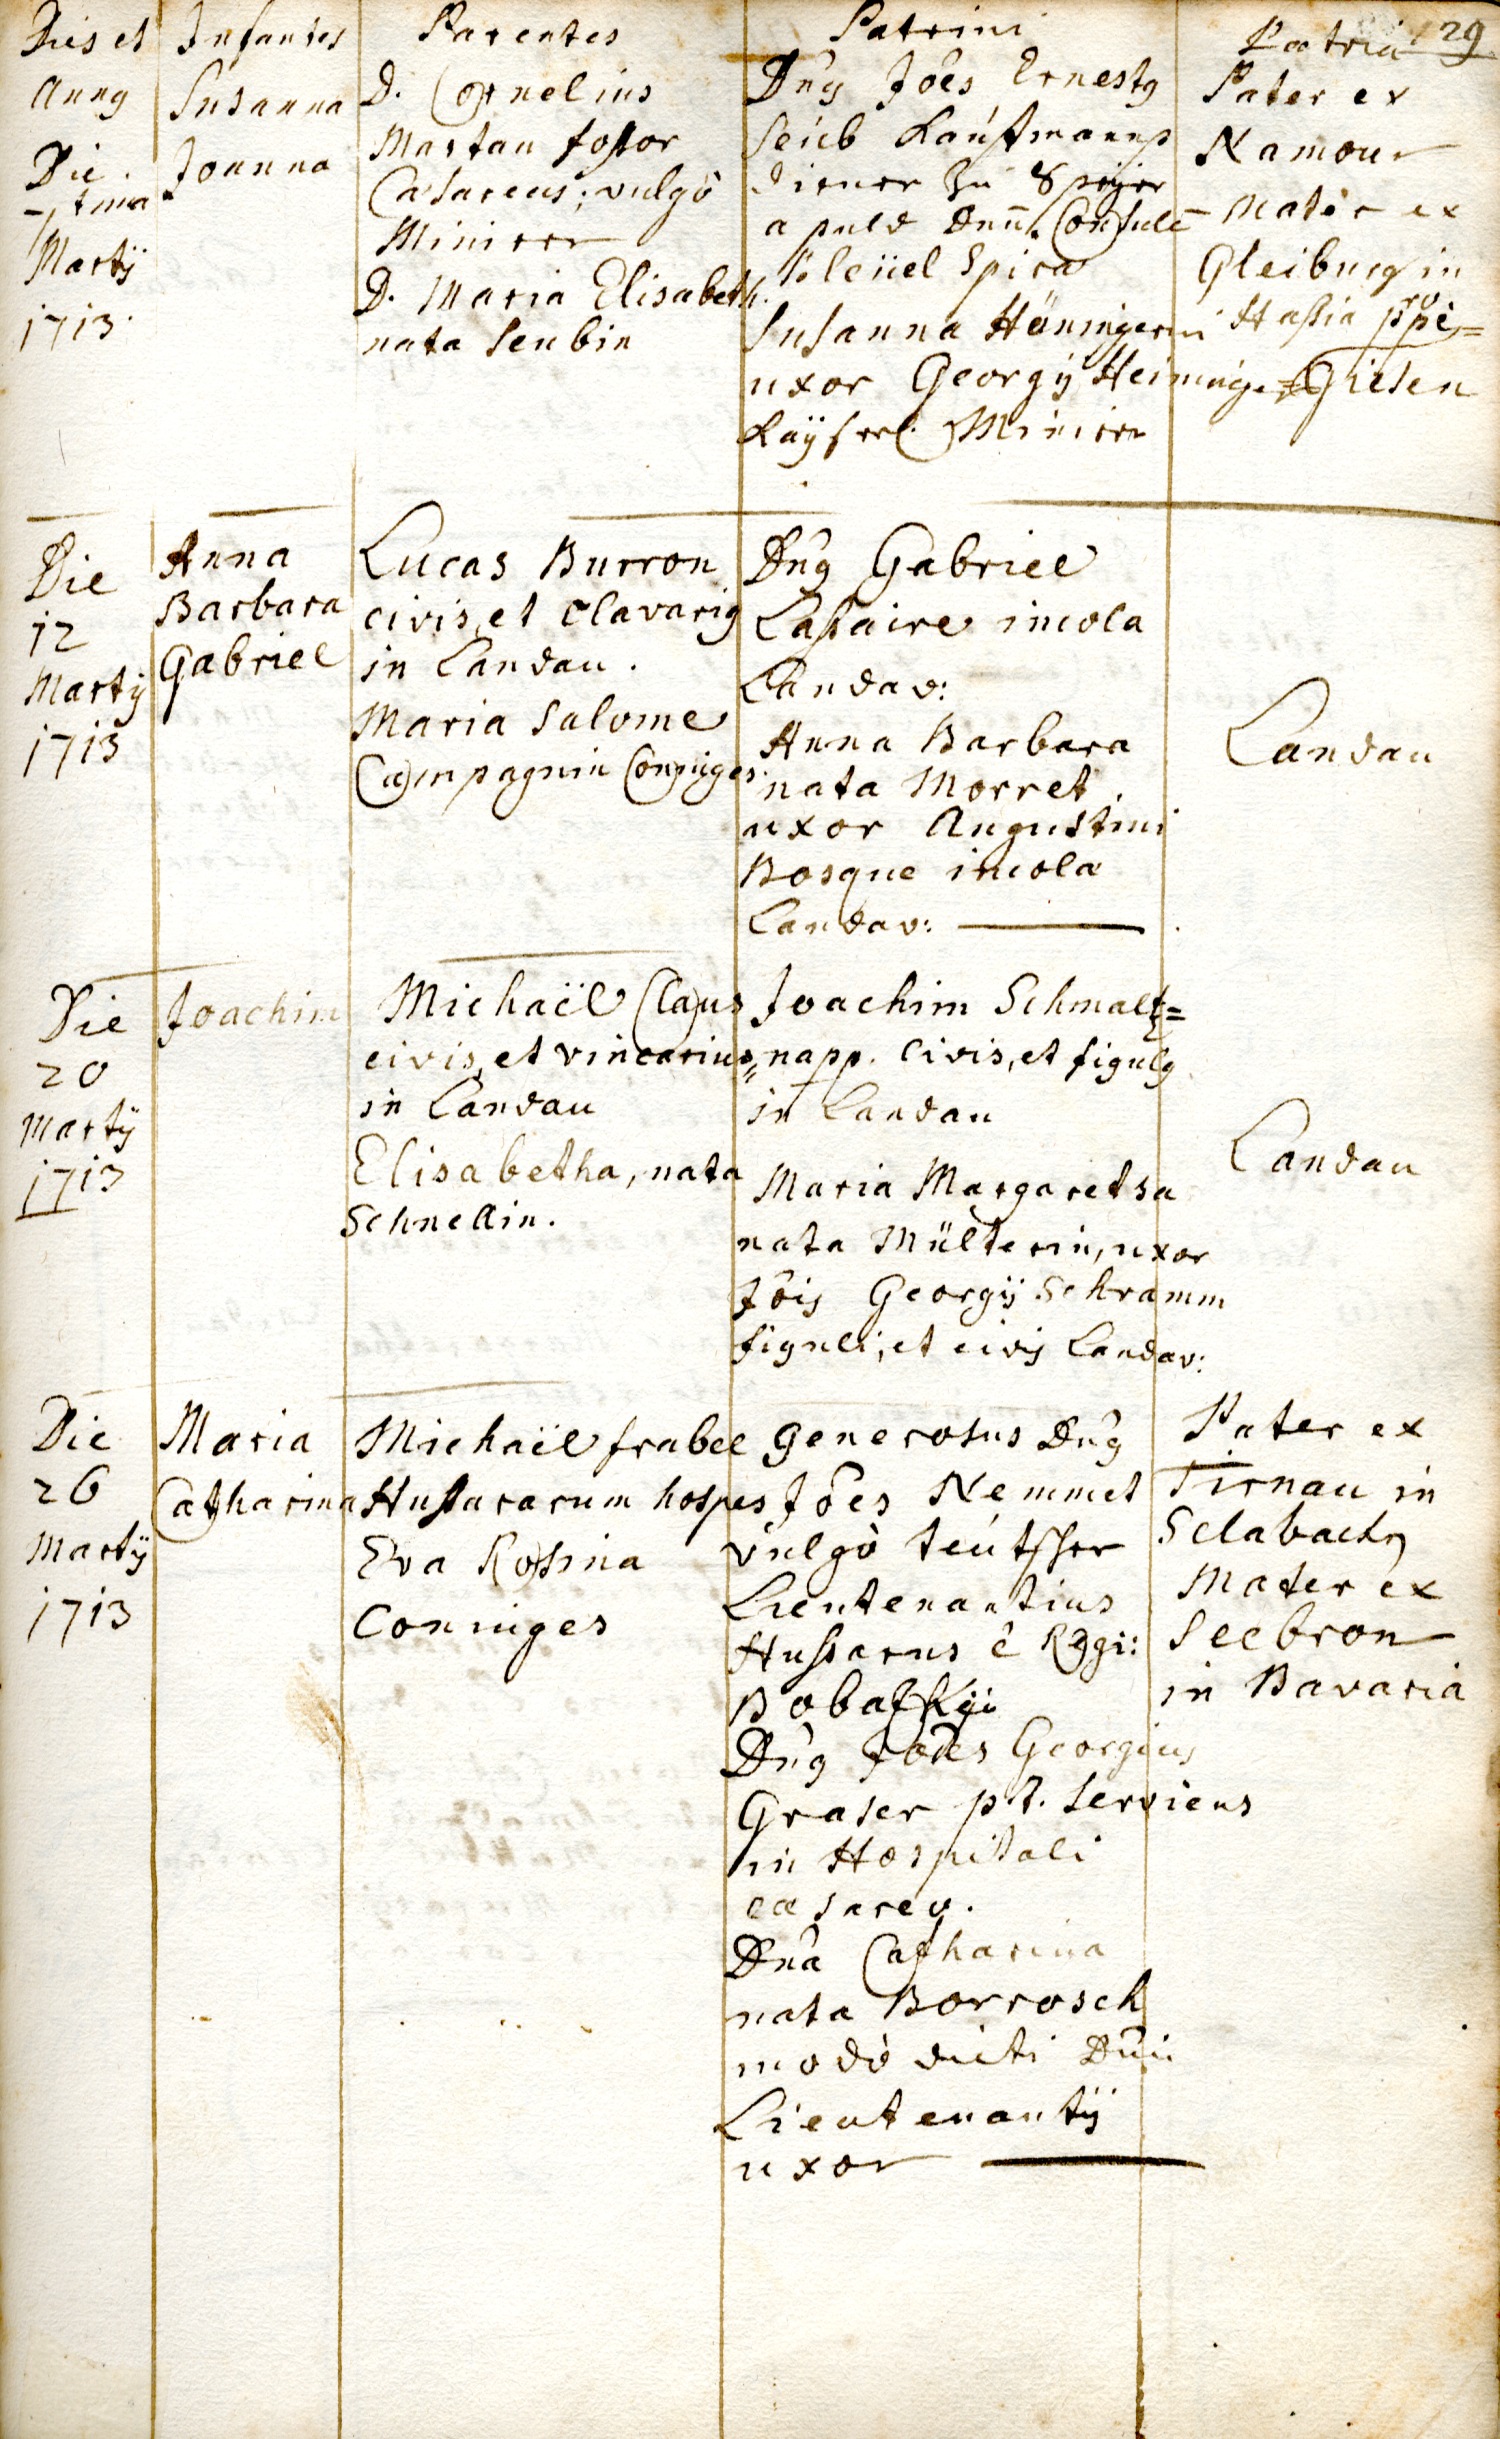 Dies et Annꝯ
Die
7tima
Martij
1713.
Infantes
Susanna
Joanna
Parentes
D. Cornelius
Martau fossor
Cæsareus; vulgò
Minirer
D. Maria Elisabeth.
nata Seubin
Patrini
Dn̄ꝯ Jōes Ernestꝯ
Seüb Kaufmanns
diener zu Speÿer
apud Dnn̄. Consulē
Bleüel Spiræ
Susanna Höningerin
uxor Georgij Heininger
Kaÿserl. Minirer
Patria 29
Pater ex
Namour
Mater ex
Gleiburg in
Hassia ꝓpè
Giesen
Die
12
Martij
1713
Anna
Barbara
Gabriel
Lucas Burron
civis, et Clavariꝯ
in Landau.
Maria Salome
Campagnin Conjuges.
Dn̄ꝯ Gabriel
Lasaire incola
Landav:
Anna Barbara
nata Morret
uxor Augustini
Bosque incola
Landav:
Landau
Die
20
Martij
1713
Joachim
Michaël Claus
civis, et vinearius
in Landau
Elisabetha, nata
Schnellin.
Joachim Schmaltz=
napp. Civis, et figulꝯ
in Landau
Maria Margaretha
nata Mülterin, uxor
Jōis Georgij Schramm
figuli, et civis Landav:
Landau
Die
26
Martij
1713
Maria
Catharina
Michaël frabel
Hussararum hospes
Eva Rosina
Conniges
Generosus Dn̄ꝯ
Jōes Nemmet
vulgò teütscher
Lieutenantius
Hussarus è Regi:
Dn̄ꝯ Jōes Georgius
Graser p.t. serviens
in Hospitali
cæsareo.
Dn̄a Catharina
nata Borrosch
modò dicti Dn̄i
Lieutenantij
uxor
Pater ex
Tirnau in
Mater ex
Seebron
in Bavaria